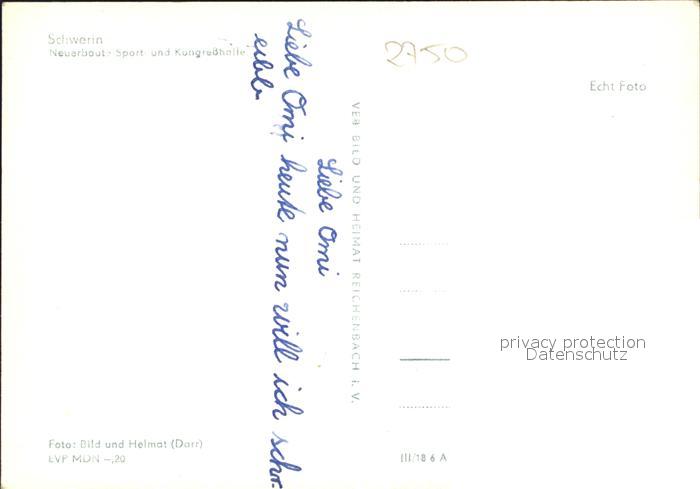 Schwerin
Neuerbaute Sport- und Kongreßhalle
2750
Echt Foto
Liebe Omi
Liebe Omi heute nun will ich schr-
eibb
VEB BILD UND HEIMAT REICHENBACH I. V.
privacy protection
Datenschutz
Foto: Bild und Heimat (Darr)
EVP MDN -,20
III/18 6 A